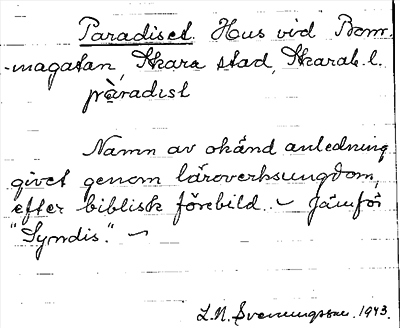 Paradiset. Hus vid Bom-
-magatan, Skara stad, Skarab. l.
pàradisl
Namn av okänd anledning
givet genom läroverksungdom,
efter biblisk förebild. ~ Jämför
"Syndis". ~
L. N. Svenungsson. 1943.